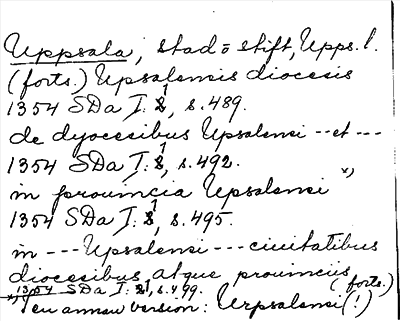 Uppsala, stad = stift, Upps. l.
(forts.) Upsalensis diocesis
1354 SDa I: 1, s. 489.
de dyocesibus Upsalensi -- et ---
1354 SDa I: 1, s. 492.
in prouincia Upsalensi x)
1354 SDa I: 1, s. 495.
in --- Upsalensi --- ciuitatibus
diocesibus atque prouinciis (forts.)
1354 SDa I: 1, s. 499.
x) I en annan version: Urpsalensi (!)